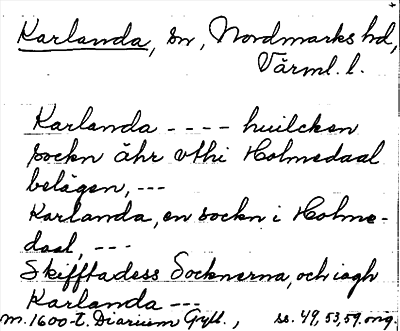 Karlanda, sn, Nordmarks hd,
Värml. l.
Karlanda ---- huilcken
sockn ähr vthi Holmedaal
belägen, ---
Karlanda, en sockn i Holme-
daal, ---
Skifftadess Socknerna, och iagh
Karlanda ---
m. 1600-t. Diarium Gyll., ss. 49, 53, 59. orig.